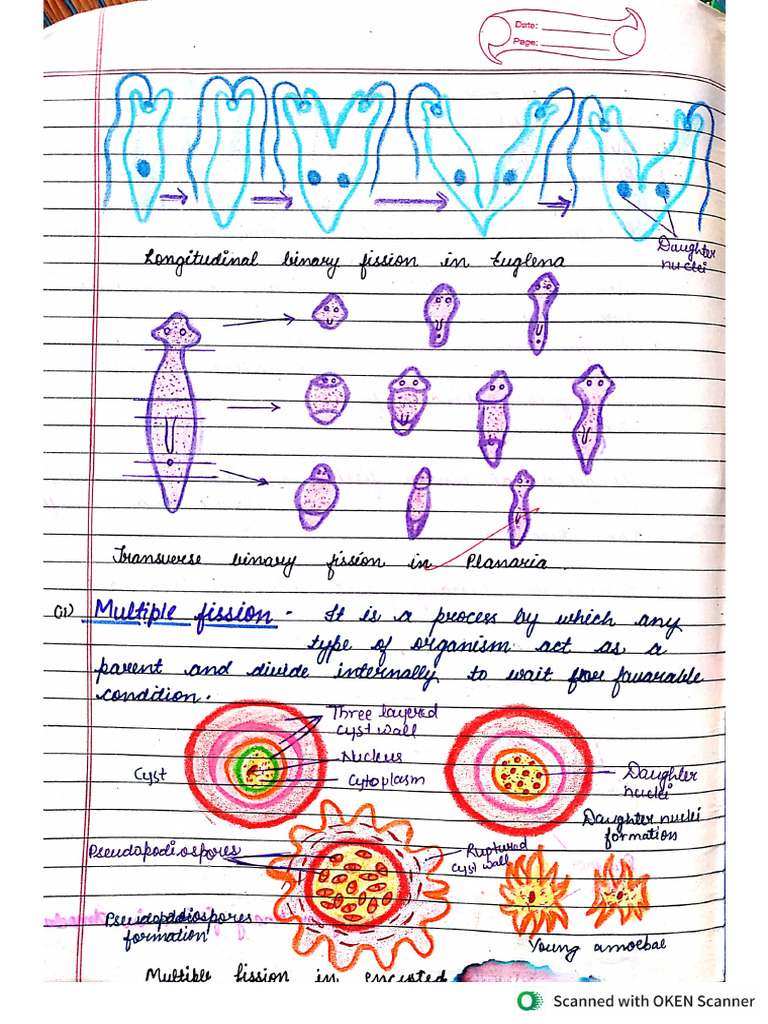 Date:
Page:
Daughter
nuclei
Longitudinal binary fission in Euglena
Transverse binary fission in Planaria.
(ii) Multiple fission - It is a process by which any
type of organism act as a
parent and divide internally to wait for favarable
condition.
Three layered
cyst wall
Nucleus
Cytoplasm
Cyst
Daughter
nuclei
Daughter nuclei
formation
Pseudopodiospores
Ruptured
cyst wall
Pseudopodiospores
formation
Young amoebae
Multiple fission in encysted
Scanned with OKEN Scanner